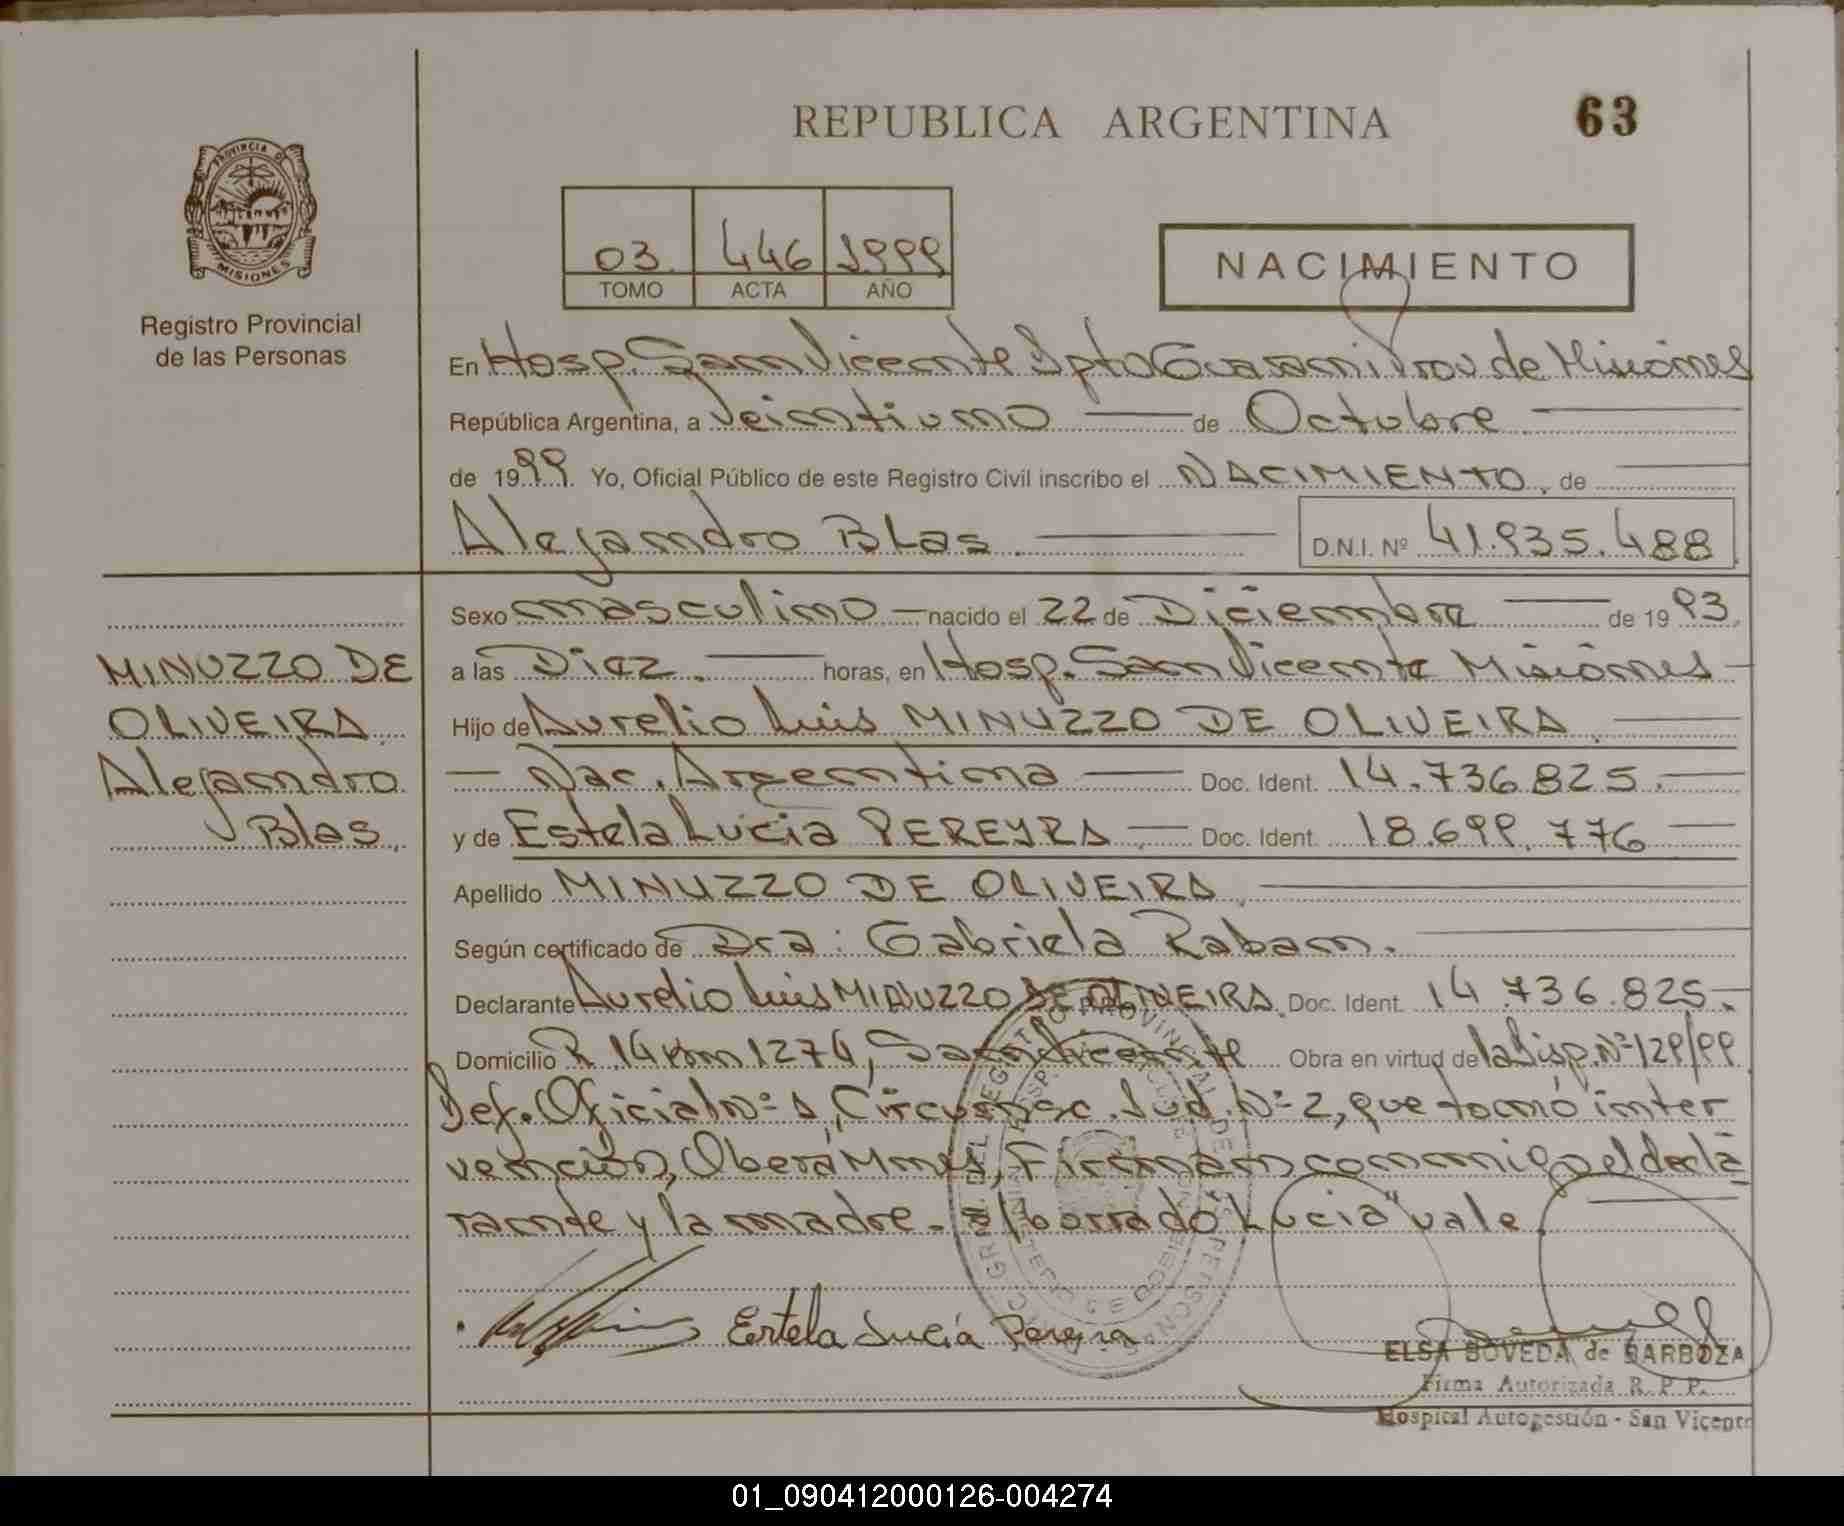 REPUBLICA ARGENTINA
63
PROVINCIA DE
MISIONES
Registro Provincial
de las Personas
03. 446 1999
TOMO ACTA AÑO
NACIMIENTO
En Hosp. San Vicente Dpto Guaraní Prov de Misiones
República Argentina, a Veintiuno de Octubre
de 1999. Yo, Oficial Público de este Registro Civil inscribo el NACIMIENTO, de
Alejandro Blas. D.N.I. Nº 41.935.488
Sexo masculino nacido el 22 de Diciembre de 1993.
a las Diez. horas, en Hosp. San Vicente Misiones
Hijo de Aurelio Luis MINUZZO DE OLIVEIRA.
Nac. Argentina Doc. Ident. 14.736.825.
y de Estela Lucia PEREYRA Doc. Ident. 18.699.776
Apellido MINUZZO DE OLIVEIRA,
Según certificado de Dra: Gabriela Raban.
Declarante Aurelio Luis MINUZZO DE OLIVEIRA. Doc. Ident. 14.736.825.
Domicilio R. 14 Km 1274, San Vicente Obra en virtud de la Disp. Nº 129/99
Def. Oficial Nº 1, Circunsc. Jud. Nº 2, que tomó inter
vención, Oberá Mnes, Firman conmigo el decla
rante y la madre. - El borrado "Lucia" vale.
MINUZZO DE
OLIVEIRA
Alejandro
Blas.
Estela Lucía Pereyra
ELSA BOVEDA de BARBOZA
Firma Autorizada R. P. P.
Hospital Autogestión - San Vicente
01_090412000126-004274